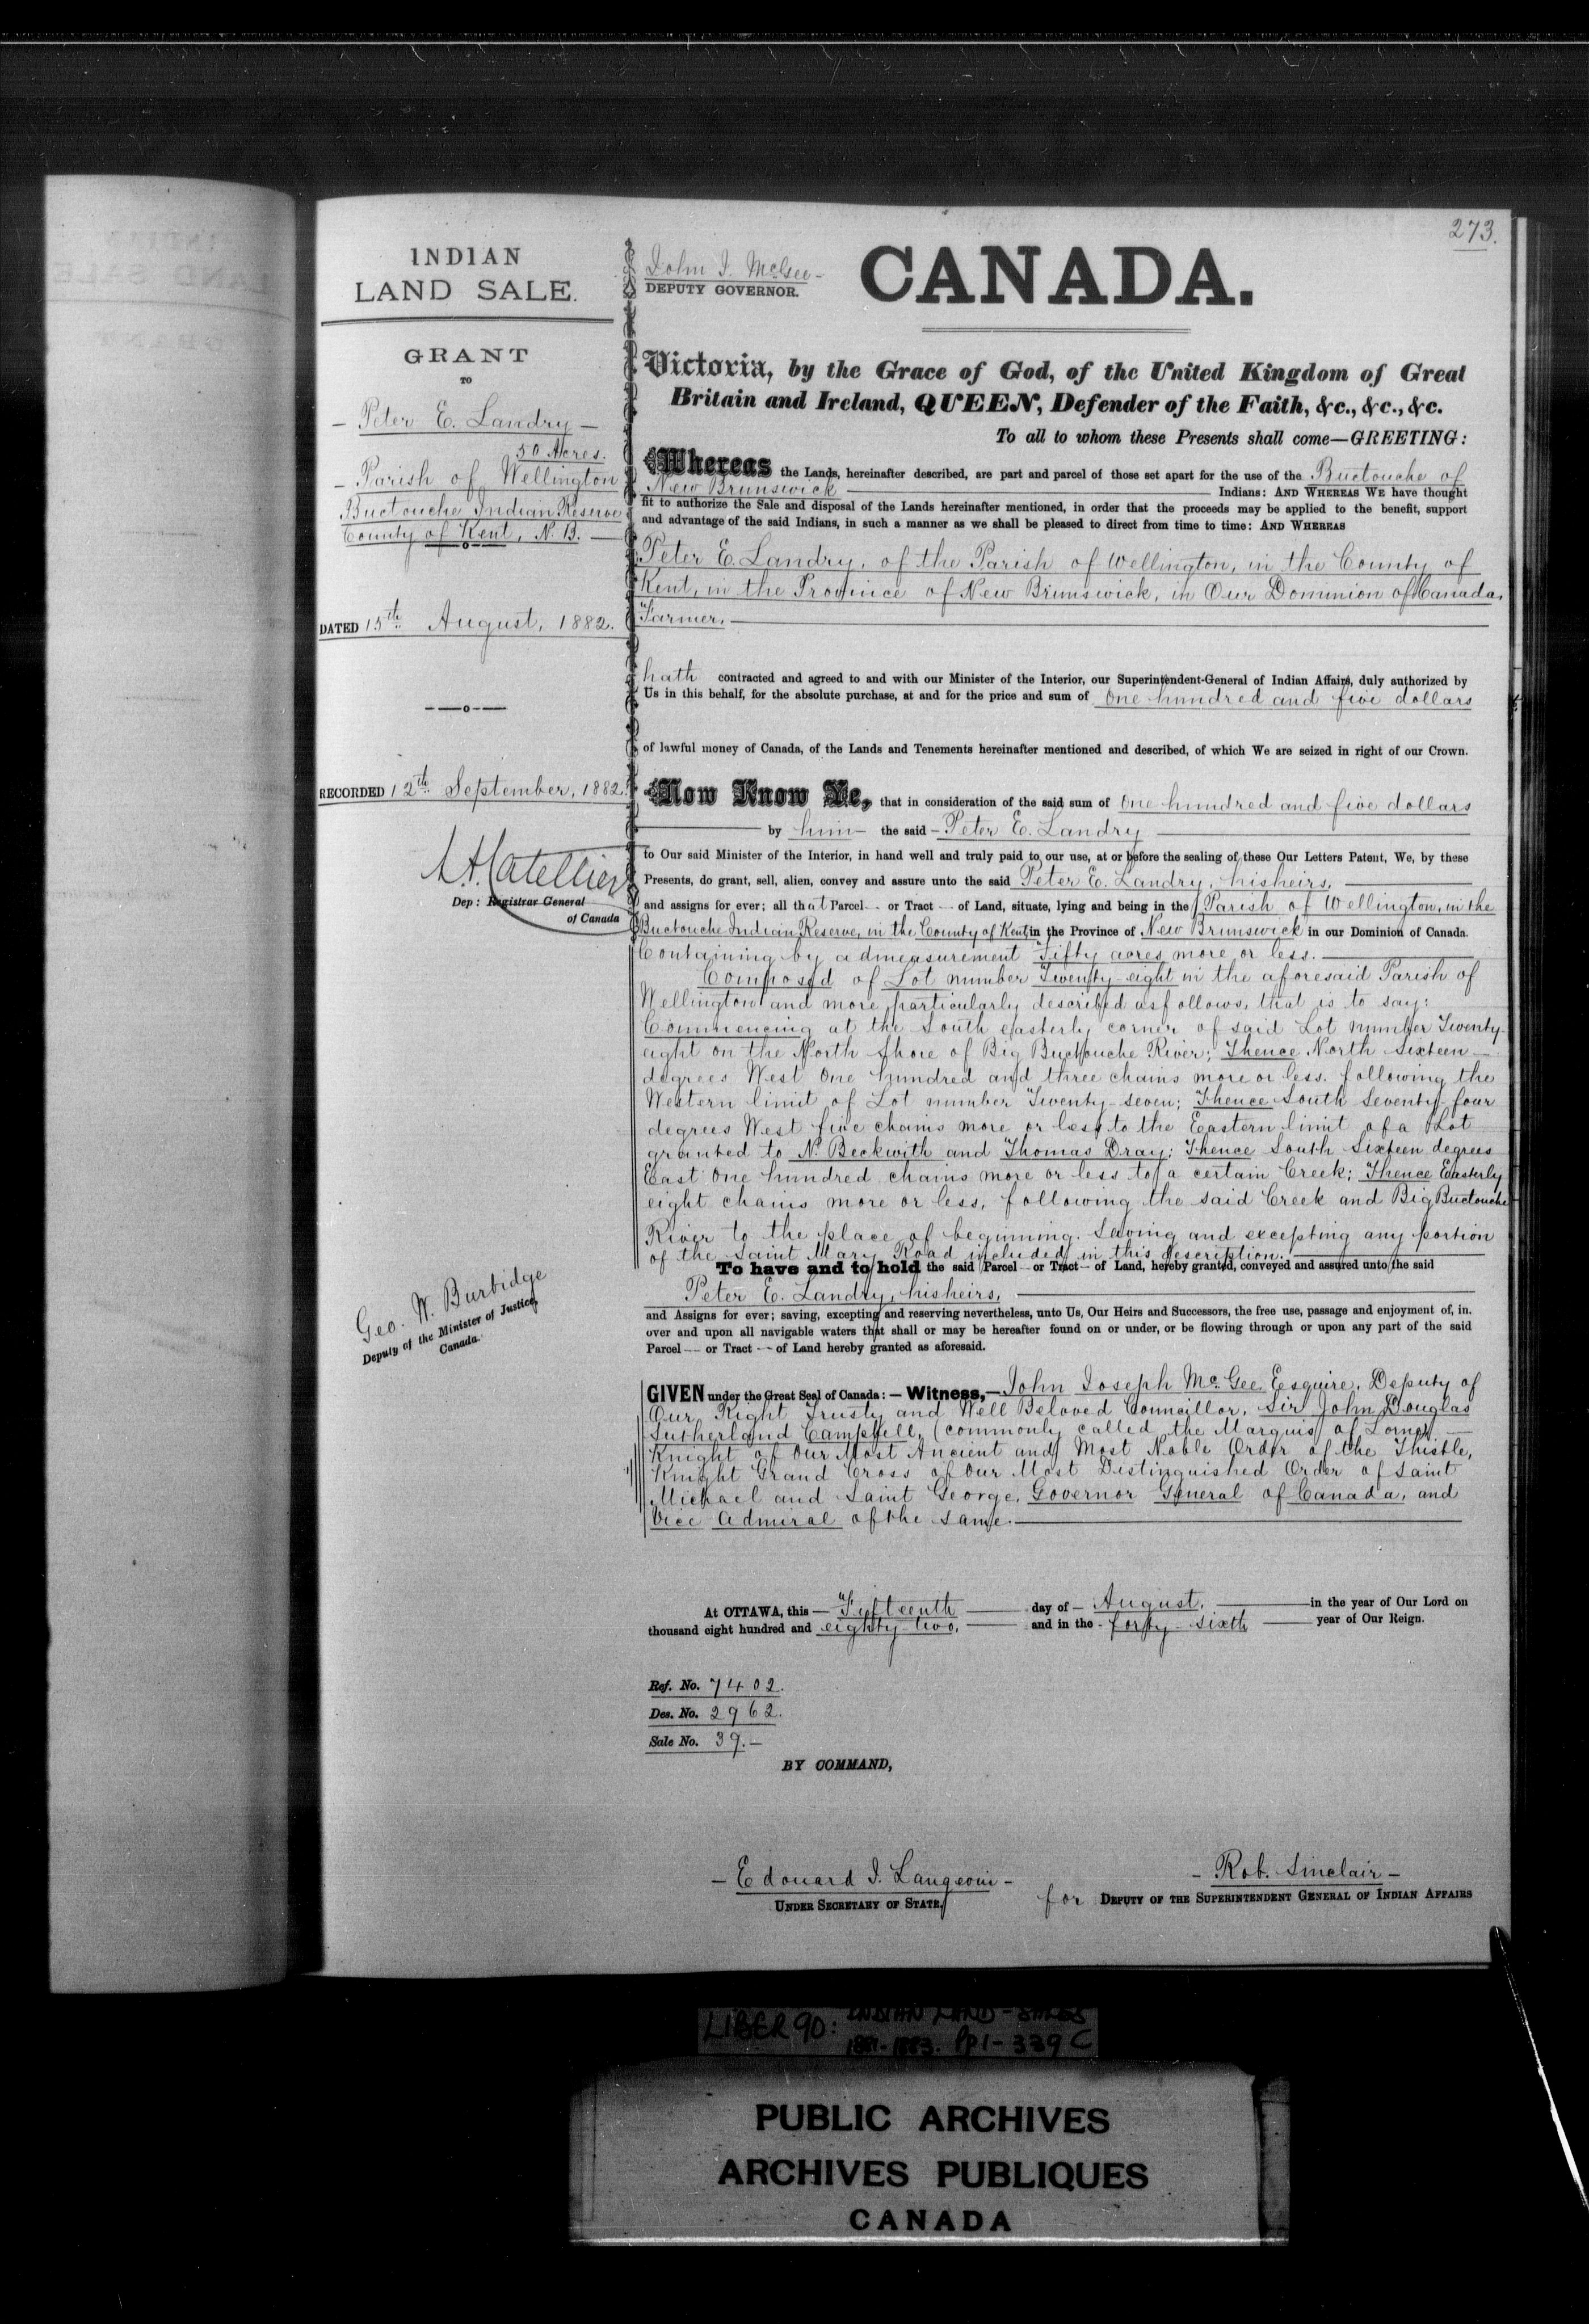 273.
INDIAN
LAND SALE.
GRANT
TO
- Peter E. Landry -
50 Acres.
- Parish of Wellington
Buctouche Indian Reserve
County of Kent, N. B. -
DATED 15th August, 1882.
RECORDED 12th September, 1882.
Dep: Registrar General
of Canada
Geo. W. Burbidge
Deputy of the Minister of Justice,
Canada.
John J. McGee -
DEPUTY GOVERNOR.
CANADA.
Victoria, by the Grace of God, of the United Kingdom of Great
Britain and Ireland, QUEEN, Defender of the Faith, &c., &c., &c.
To all to whom these Presents shall come—GREETING:
Whereas the Lands, hereinafter described, are part and parcel of those set apart for the use of the Buctouche of
New Brunswick Indians: AND WHEREAS WE have thought
fit to authorize the Sale and disposal of the Lands hereinafter mentioned, in order that the proceeds may be applied to the benefit, support
and advantage of the said Indians, in such a manner as we shall be pleased to direct from time to time: AND WHEREAS
Peter E. Landry, of the Parish of Wellington, in the County of
Kent, in the Province of New Brunswick, in Our Dominion of Canada,
Farmer.
hath contracted and agreed to and with our Minister of the Interior, our Superintendent-General of Indian Affairs, duly authorized by
Us in this behalf, for the absolute purchase, at and for the price and sum of One hundred and five dollars
of lawful money of Canada, of the Lands and Tenements hereinafter mentioned and described, of which We are seized in right of our Crown.
Now Know Ye, that in consideration of the said sum of One hundred and five dollars
by him - the said - Peter E. Landry
to Our said Minister of the Interior, in hand well and truly paid to our use, at or before the sealing of these Our Letters Patent, We, by these
Presents, do grant, sell, alien, convey and assure unto the said Peter E. Landry, his heirs,
and assigns for ever; all that Parcel - or Tract - of Land, situate, lying and being in the Parish of Wellington, in the
Buctouche Indian Reserve, in the County of Kent, in the Province of New Brunswick in our Dominion of Canada.
Containing by admeasurement Fifty acres more or less.
Composed of Lot number Twenty-eight in the aforesaid Parish of
Wellington and more particularly described as follows, that is to say:
Commencing at the South easterly corner of said Lot number Twenty-
eight on the North Shore of Big Buctouche River; Thence North Sixteen
degrees West One hundred and three chains more or less. following the
Western limit of Lot number Twenty-seven; Thence South Seventy-four
degrees West five chains more or less to the Eastern limit of a Lot
granted to N. Beckwith and Thomas Dray; Thence South Sixteen degrees
East One hundred chains more or less to a certain Creek; Thence Easterly
eight chains more or less, following the said Creek and Big Buctouche
River to the place of beginning. Saving and excepting any portion
of the Saint Mary Road included in this description.
To have and to hold the said Parcel - or Tract - of Land, hereby granted, conveyed and assured unto the said
Peter E. Landry, his heirs,
and Assigns for ever; saving, excepting and reserving nevertheless, unto Us, Our Heirs and Successors, the free use, passage and enjoyment of, in,
over and upon all navigable waters that shall or may be hereafter found on or under, or be flowing through or upon any part of the said
Parcel - or Tract - of Land hereby granted as aforesaid.
GIVEN under the Great Seal of Canada: - Witness, - John Joseph McGee, Esquire, Deputy of
Our Right Trusty and Well Beloved Councillor, Sir John Douglas
Sutherland Campbell, (commonly called the Marquis of Lorne)
Knight of Our Most Ancient and Most Noble Order of the Thistle,
Knight Grand Cross of Our Most Distinguished Order of Saint
Michael and Saint George, Governor General of Canada, and
Vice Admiral of the same.
At OTTAWA, this - Fifteenth day of - August, in the year of Our Lord on
thousand eight hundred and eighty-two, and in the - forty-sixth year of Our Reign.
Ref. No. 7402.
Des. No. 2962.
Sale No. 39. -
BY COMMAND,
- Edouard J. Langevin -
UNDER SECRETARY OF STATE,
- Rob. Sinclair -
for DEPUTY OF THE SUPERINTENDENT GENERAL OF INDIAN AFFAIRS
LIBER 90: INDIAN LAND - SALES
1881-1883. Pp 1-339 C
PUBLIC ARCHIVES
ARCHIVES PUBLIQUES
CANADA